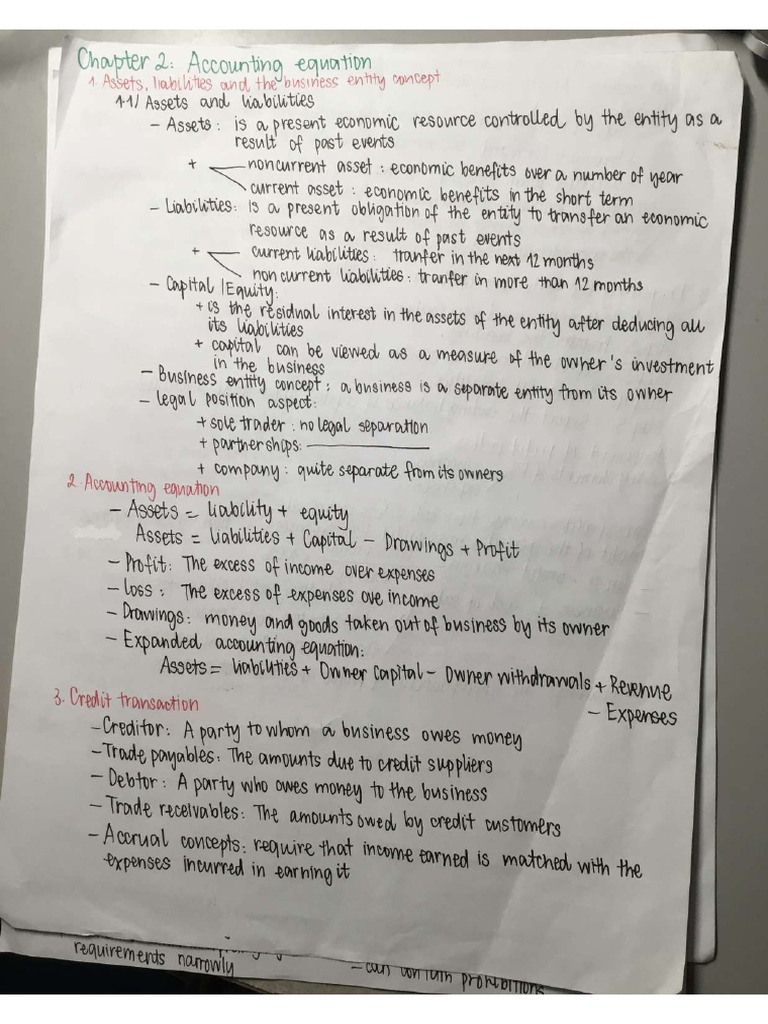 Chapter 2: Accounting equation
1. Assets, liabilities and the business entity concept
1.1/ Assets and liabilities
- Assets: is a present economic resource controlled by the entity as a
result of past events
+ noncurrent asset: economic benefits over a number of year
current asset: economic benefits in the short term
- Liabilities: Is a present obligation of the entity to transfer an economic
resource as a result of past events
+ current liabilities: tranfer in the next 12 months
non current liabilities: tranfer in more than 12 months
- Capital / Equity:
+ is the residual interest in the assets of the entity after deducing all
its liabilities
+ capital can be viewed as a measure of the owner's investment
in the business
- Business entity concept: a business is a separate entity from its owner
- legal position aspect:
+ sole trader: no legal separation
+ partnerships:
+ company: quite separate from its owners
2. Accounting equation
- Assets = liability + equity
Assets = liabilities + Capital - Drawings + Profit
- Profit: The excess of income over expenses
- Loss: The excess of expenses ove income
- Drawings: money and goods taken out of business by its owner
- Expanded accounting equation:
Assets = liabilities + Owner Capital - Owner withdrawals + Revenue
- Expenses
3. Credit transaction
- Creditor: A party to whom a business owes money
- Trade payables: The amounts due to credit suppliers
- Debtor: A party who owes money to the business
- Trade receivables: The amounts owed by credit customers
- Accrual concepts: require that income earned is matched with the
expenses incurred in earning it
requirements narrowly
- can contain prohibitions